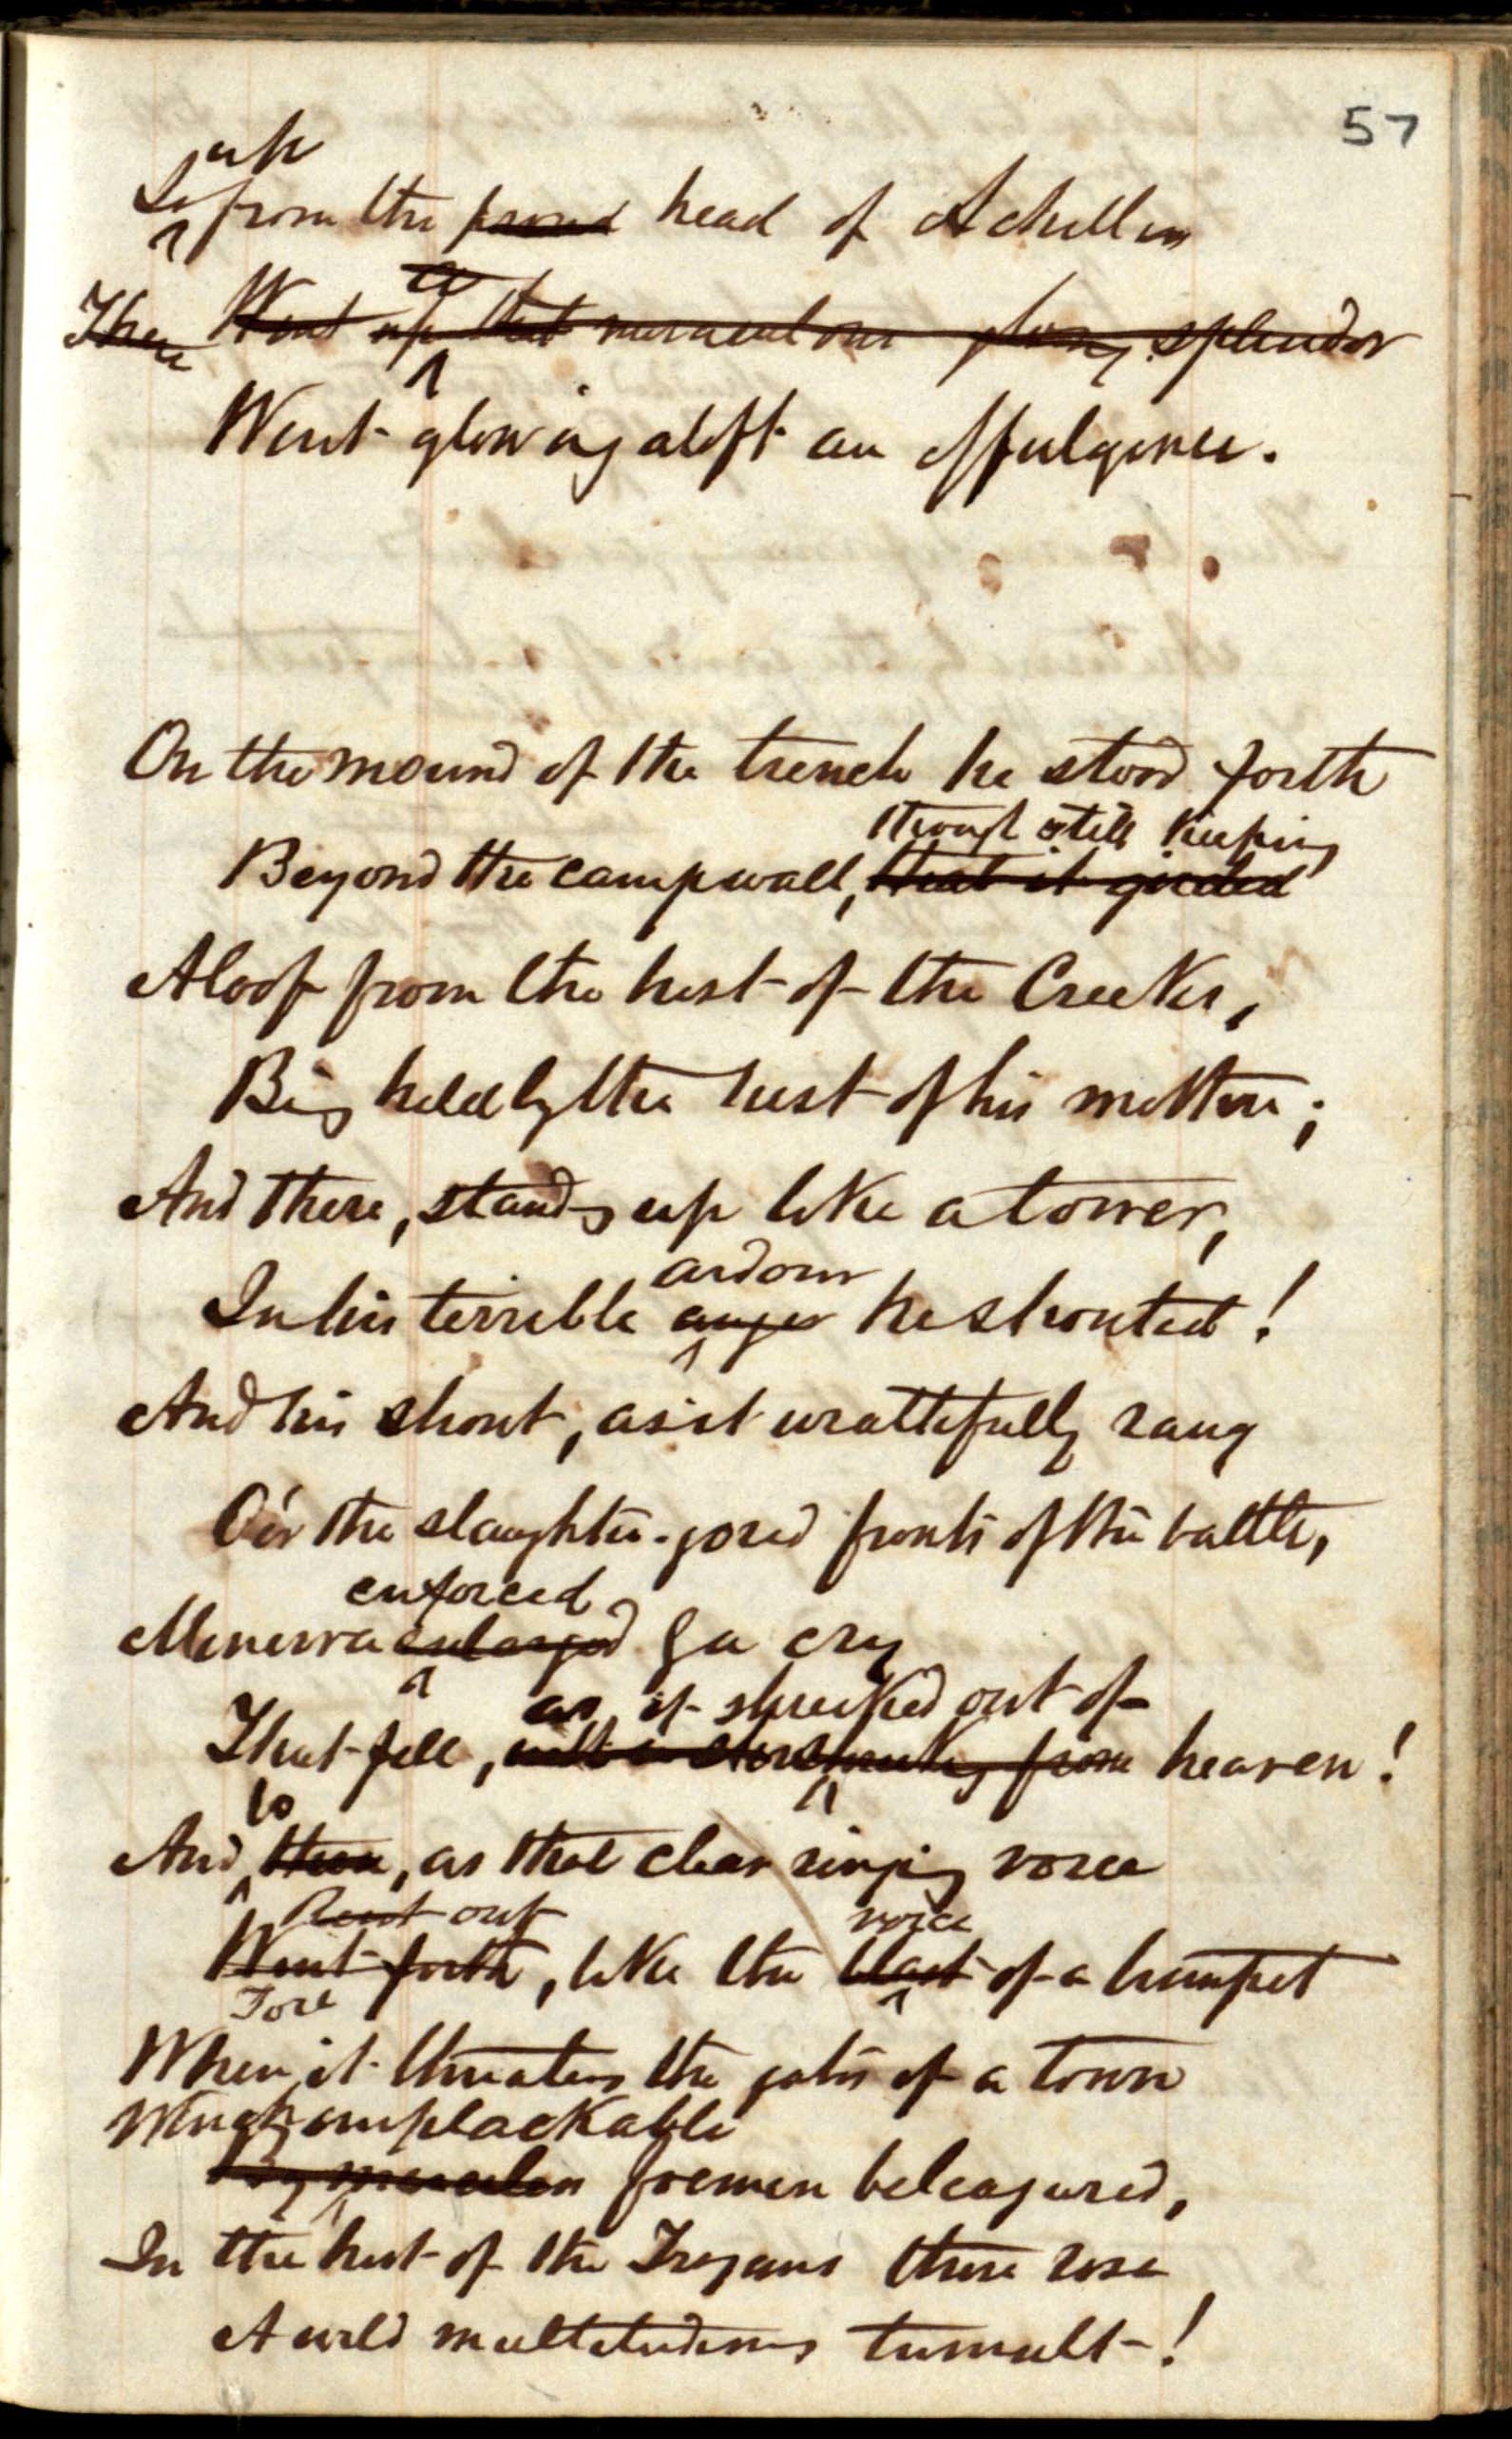 57
up
So from the proud head of Achilles
a
There Went up that miraculous glory splendor
Went glowing aloft an effulgence.
On the mound of the trench he stood forth
though still keeping
Beyond the camp wall, that it girded
Aloof from the host of the Creeks,
Big held by the hest of his mother;
And there, standing up like a tower,
ardour
In his terrible anger he shouted!
And his shout, as it wrathfully rang
O'er the slaughter-gored fronts of the battle,
enforced
Minerva enlarged by a cry
as if shrieked out of
That fell, shrieking from heaven!
lo
And, then, as that clear ringing voice
Rent out
voice
Went forth, like the blast of a trumpet
Tore
When it threatens the gates of a town
Which implackable
By merciless foemen beleagured,
In the host of the Trojans there rose
A wild multitudinous tumult!